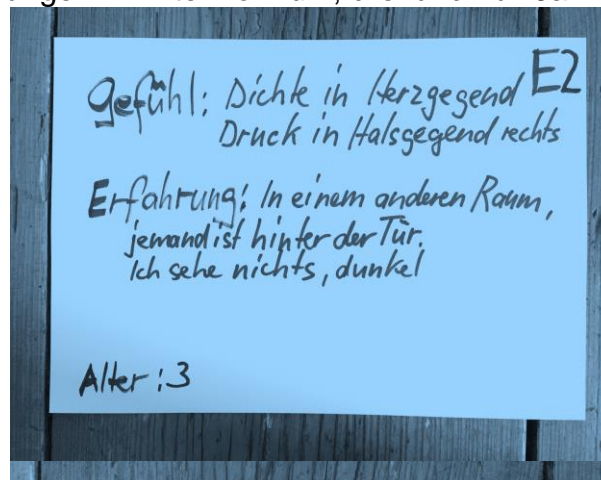 E2
Gefühl: Dichte in Herzgegend
Druck in Halsgegend rechts
Erfahrung: In einem anderen Raum,
jemand ist hinter der Tür.
Ich sehe nichts, dunkel
Alter: 3